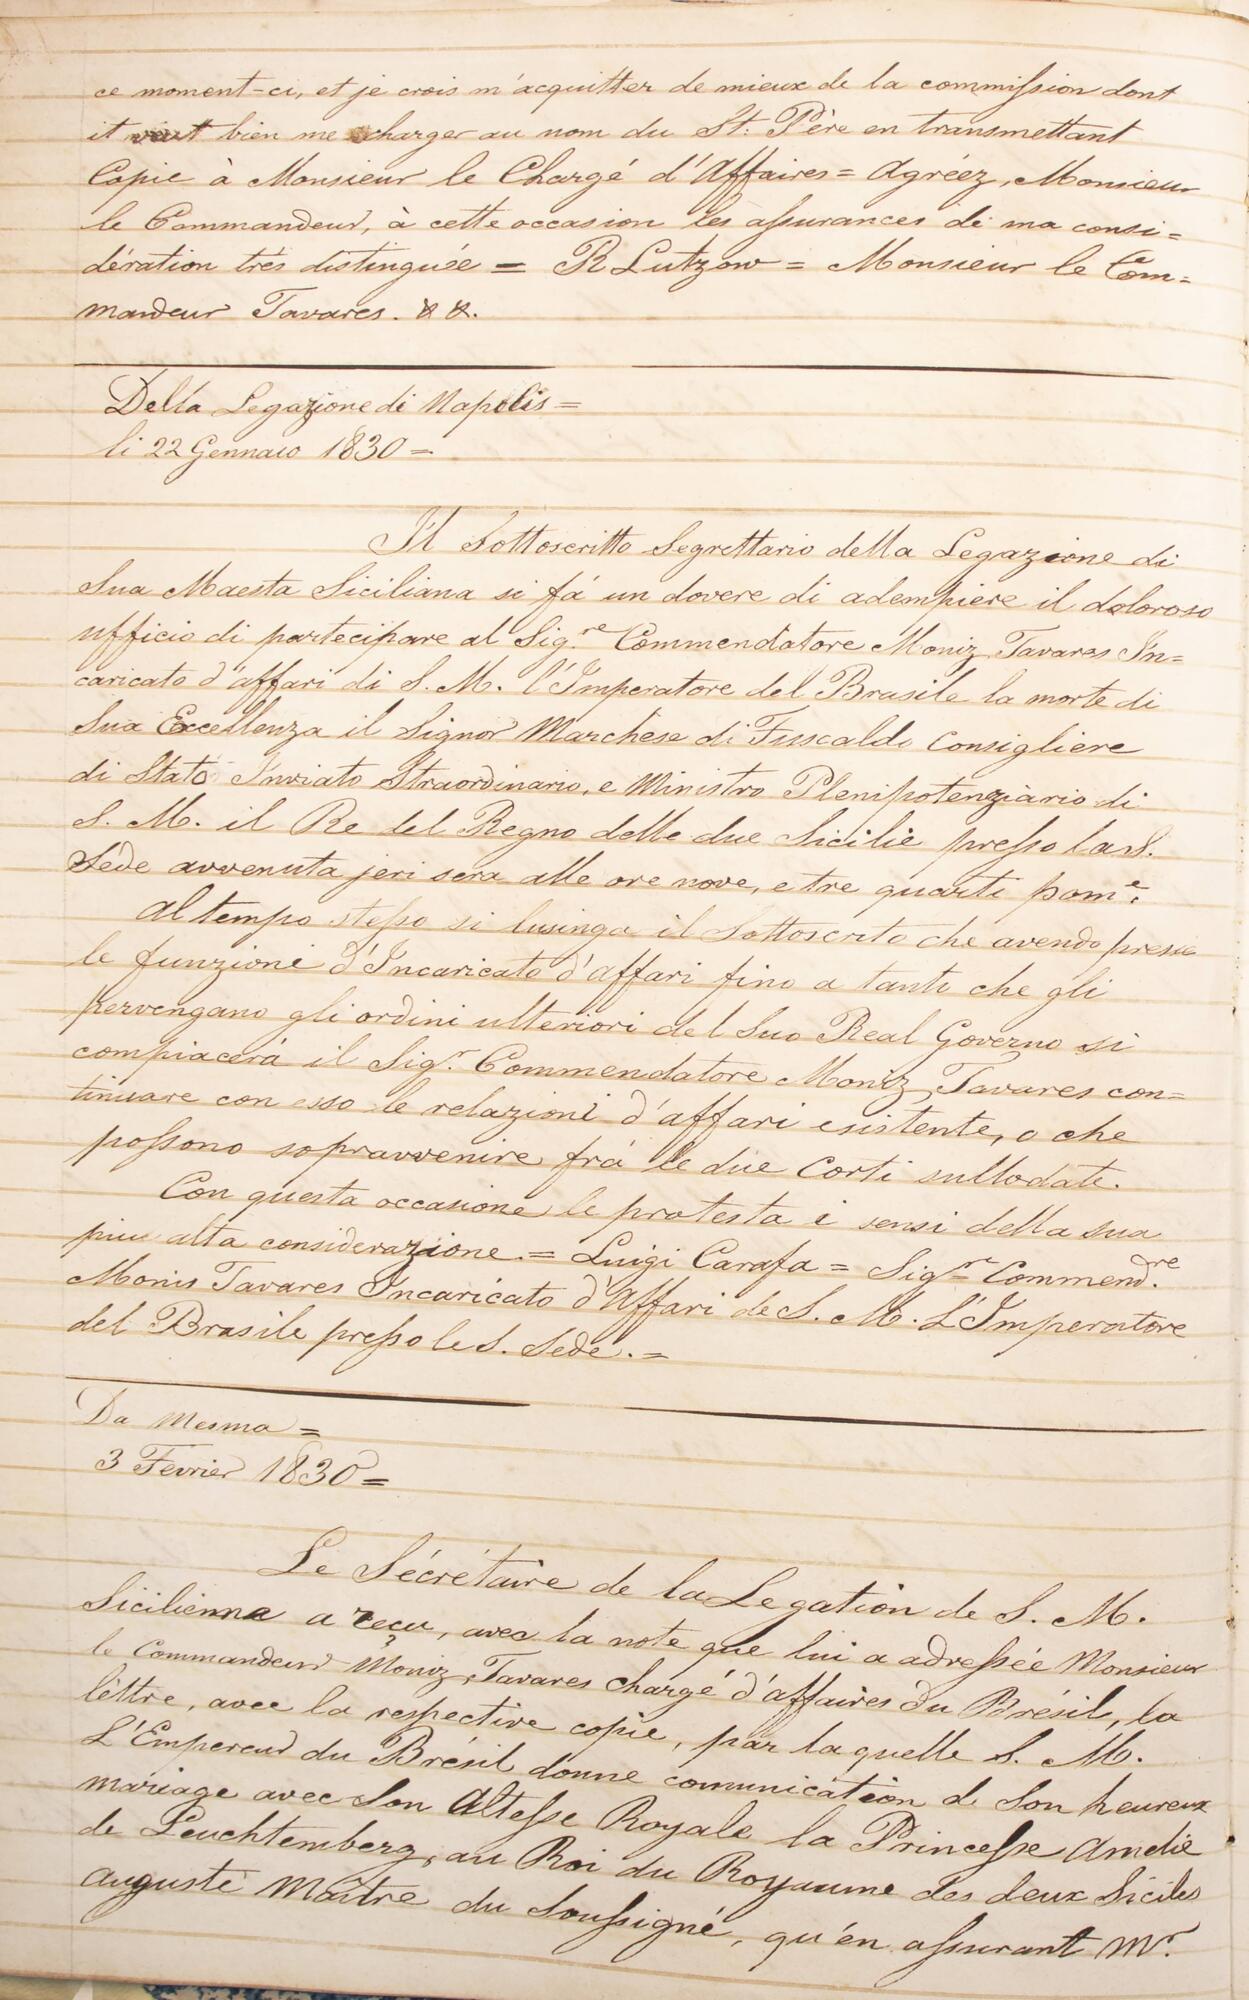 ce moment-ci, et je crois m'acquitter de mieux de la commission dont
it veut bien me charger au nom du St. Père en transmettant
Copie à Monsieur le Chargé d'Affaires = Agréez, Monsieur
le Commandeur, à cette occasion les assurances de ma consi=
dération très distinguée = R Lutzow = Monsieur le Com=
mandeur Tavares. & &.
Della Legazione di Napolis =
li 22 Gennaio 1830 =
Il Sottoscritto Segrettario della Legazione di
Sua Maesta Siciliana si fá un dovere di adempiere il doloroso
ufficio di partecipare al Sig.re Commendatore Moniz Tavares In=
caricato d'affari di S. M. l'Imperatore del Brasile la morte di
Sua Eccellenza il Signor Marchese di Fuscaldo Consigliere
di Stato Inviato Straordinario, e Ministro Plenipotenziario di
S. M. il Re del Regno delle due Sicilie presso la S.
Sede avvenuta jeri sera alle ore nove, e tre quarti pom.e
Al tempo stesso si lusinga il Sottoscrito che avendo prese
le funzioni d'Incaricato d'affari fino a tanto che gli
pervengano gli ordini ulteriori del Suo Real Governo si
compiacerá il Sig.r Commendatore Moniz Tavares con=
tinuare con esso le relazioni d'affari esistente, o che
possono sopravvenire frá le due Corti sullodate.
Con questa occasione le protesta i sensi della sua
piu alta considerazione. = Luigi Carafa = Sig.r Commend.re
Monis Tavares Incaricato d'Affari de S. M. L'Imperatore
del Brasile presso le S. Sede. =
Da Mesma =
3 Fevrier 1830 =
Le Sécrétaire de la Legation de S. M.
Sicilienne a reçu, avec la note que lui a adressée Monsieur
le Commandeur Moniz Tavares chargé d'affaires du Brésil, la
léttre, avec la respective copie, par laquelle S. M.
L'Empereur du Brésil donne comunication de Son heureux
mariage avec Son Altesse Royale la Princesse Amelie
de Leuchtemberg, au Roi du Royaume des deux Siciles
auguste Maître du Soussigné, qu'én assurant Mr.